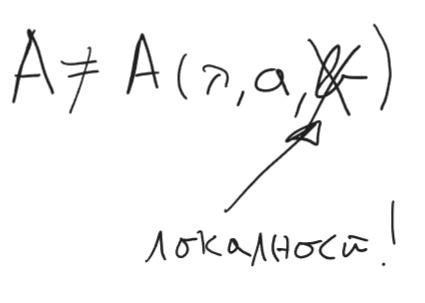 A ≠ A(λ, a, b)
локалност!